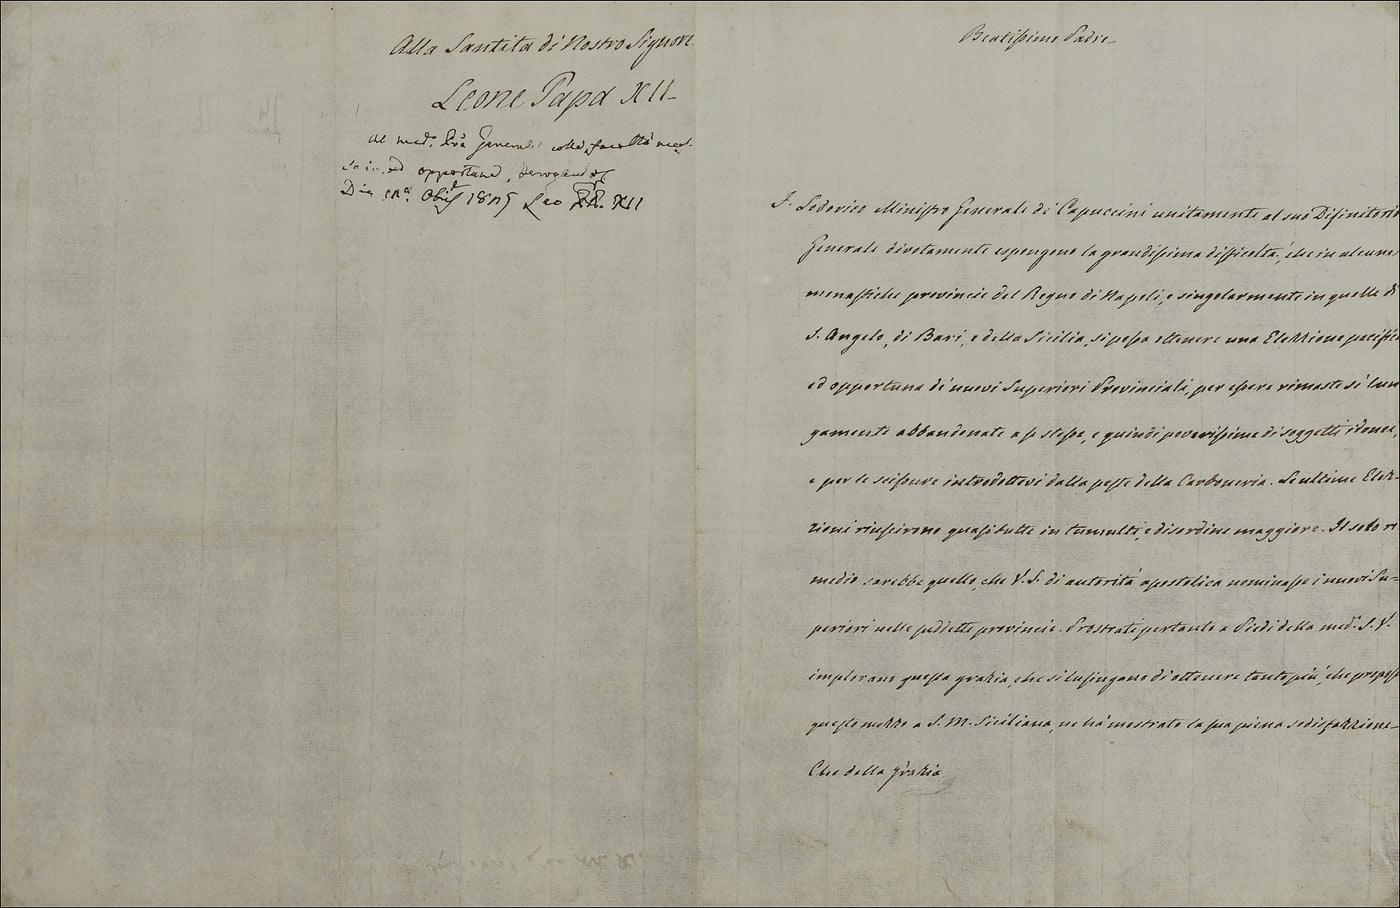 Alla Santità di Nostro Signore
Leone Papa XII
Al med.º Prê Generale colle facoltà neces
sarie ed opportune, derogando &
Dia 8bris 1825 Leo PP. XII
Beatissimo Padre
F. Lodovico Ministro Generale de' Capuccini unitamente al suo Difinitorio
Generale divotamente espongono la grandissima difficoltà, che in alcune
monastiche provincie del Regno di Napoli, e singolarmente in quelle di
S. Angelo, di Bari, e della Sicilia, si possa ottenere una Elezzione pacifica
ed opportuna di nuovi Superiori Provinciali, per essere rimaste sì lun
gamente abbandonate a se stesse, e quindi poverissime di soggetti idonei,
e per le scissure introdottevi dalla peste della Carboneria. Le ultime Elez-
zioni riuscirono quasi tutte in tumulti, e disordine maggiore. Il solo ri
medio sarebbe quello, che V. S. di autorità apostolica nominasse i nuovi Su=
periori nelle suddette provincie. Prostrati pertanto a Piedi della med.ª S. V.
implorano questa grazia, che si lusingano di ottenere tanto più, che propost
questo mezzo a S. M. Siciliana, ne ha mostrato la sua piena sodisfazzione
Che della Grazia